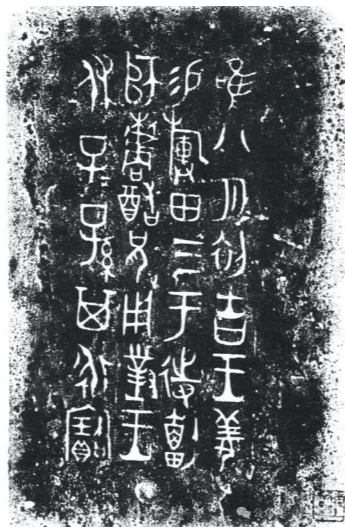 唯八月初吉王姜
易旟田三于待劇
師楷酷兄用對王
休子孫其永寶